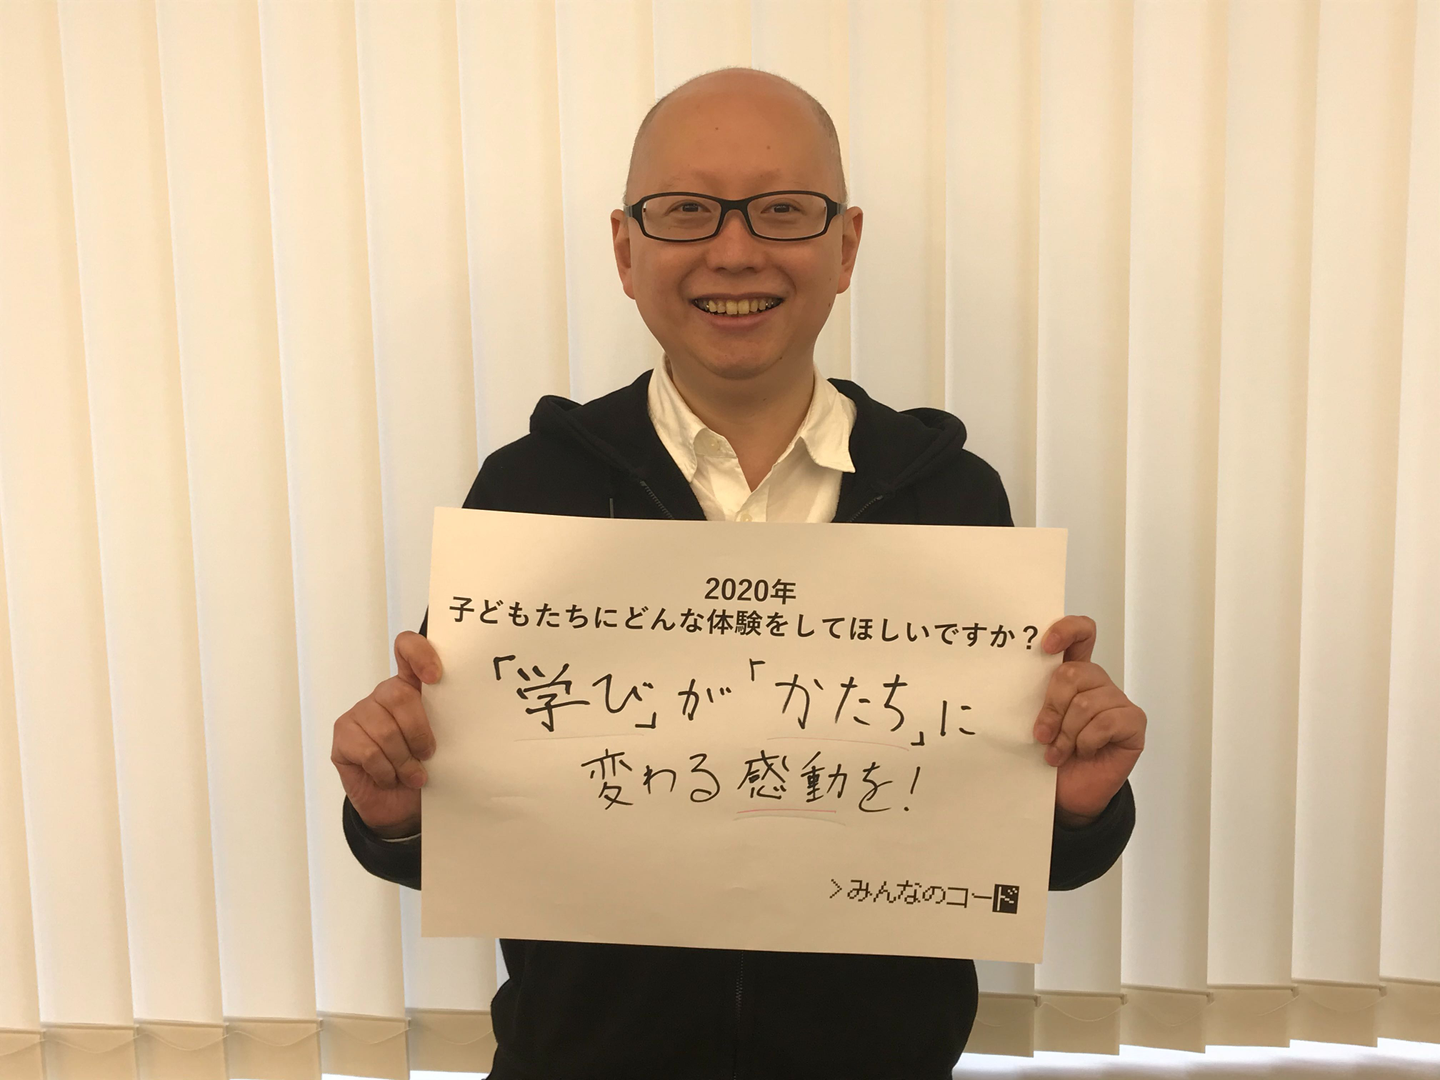 2020年
子どもたちにどんな体験をしてほしいですか？
「学び」が「かたち」に
変わる感動を！
>みんなのコード